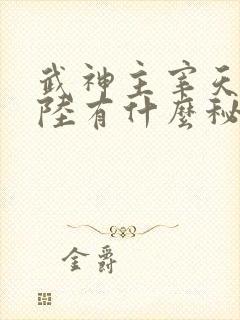 武神主宰天
陸有什麼秘
金爵